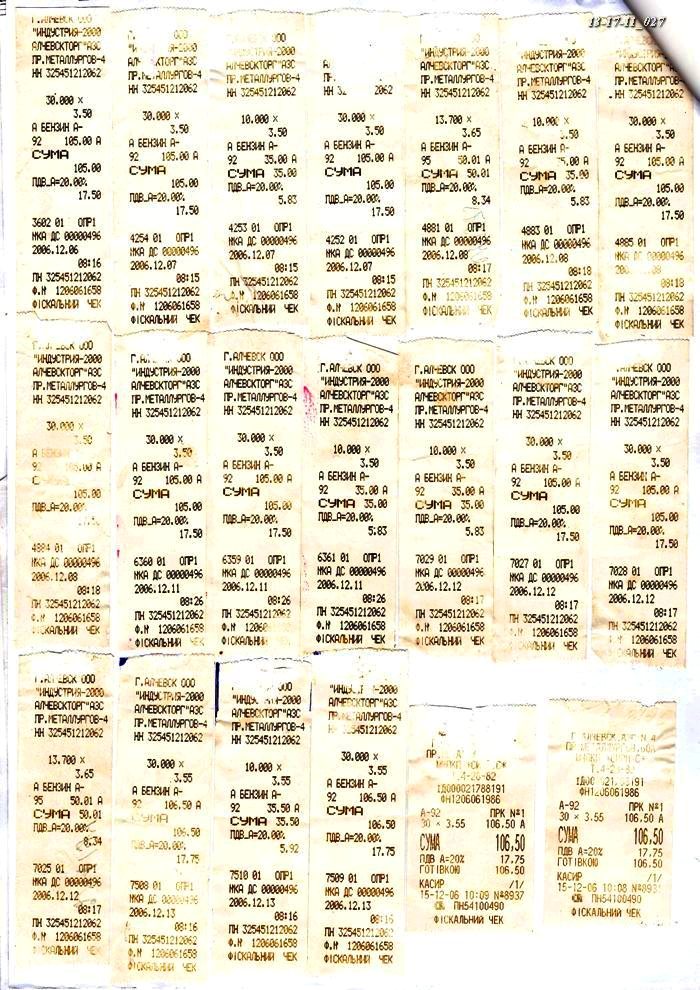 13-17-11_027
Г.АЛЧЕВСК ООО
"ИНДУСТРИЯ-2000
АЛЧЕВСКТОРГ"АЗС
ПР.МЕТАЛЛУРГОВ-4
НН 325451212062
30.000 x
3.50
А БЕНЗИН А-
92 105.00 А
СУМА
105.00
ПДВ_А=20.00%
17.50
3602 01 ОПР1
МКА ДС 00000496
2006.12.06
08:16
ПН 325451212062
Ф.Н 1206061658
ФІСКАЛЬНИЙ ЧЕК
ООО
ИЯ-2000
"АЗС
ПР. ЛУРГОВ-4
НН 325451212062
30.000 x
3.50
А БЕНЗИН А-
92 105.00 А
СУМА
105.00
ПДВ_А=20.00%
17.50
4254 01 ОПР1
МКА ДС 00000496
2006.12.07
08:15
ПН 325451212062
Ф.Н 1206061658
ФІСКАЛЬНИЙ ЧЕК
ООО
"ИНДУСТРИЯ-2000
АЛЧЕВСКТОРГ"АЗС
ПР.МЕТАЛЛУРГОВ-4
НН 325451212062
10.000 x
3.50
А БЕНЗИН А-
92 35.00 А
СУМА 35.00
ПДВ_А=20.00%
5.83
4253 01 ОПР1
МКА ДС 00000496
2006.12.07
08:15
ПН 325451212062
Ф.Н 1206061658
ФІСКАЛЬНИЙ ЧЕК
НН 2062
30.000 x
3.50
А БЕНЗИН А-
92 105.00 А
СУМА
105.00
ПДВ_А=20.00%
17.50
4252 01 ОПР1
МКА ДС 00000496
2006.12.07
08:15
ПН 325451212062
Ф.Н 1206061658
ФІСКАЛЬНИЙ ЧЕК
Г.АЛЧЕВСК ООО
"ИНДУСТРИЯ-2000
АЛЧЕВСКТОРГ"АЗС
ПР.МЕТАЛЛУРГОВ-4
НН 325451212062
13.700 x
3.65
А БЕНЗИН А-
95 50.01 А
СУМА 50.01
ПДВ_А=20.00%
8.34
4881 01 ОПР1
МКА ДС 00000496
2006.12.08
08:17
ПН 325451212062
Ф.Н 1206061658
ФІСКАЛЬНИЙ ЧЕК
"ИНДУСТРИЯ-2000
АЛЧЕВСКТОРГ"АЗС
ПР.МЕТАЛЛУРГОВ-4
НН 325451212062
10.000 x
3.50
А БЕНЗИН А-
92 35.00 А
СУМА 35.00
ПДВ_А=20.00%
5.83
4883 01 ОПР1
МКА ДС 00000496
2006.12.08
08:18
ПН 325451212062
Ф.Н 1206061658
ФІСКАЛЬНИЙ ЧЕК
"ИНДУСТРИЯ-2000
АЛЧЕВСКТОРГ"АЗС
ПР.МЕТАЛЛУРГОВ-4
НН 325451212062
30.000 x
3.50
А БЕНЗИН А-
92 105.00 А
СУМА
105.00
ПДВ_А=20.00%
17.50
4885 01 ОПР1
МКА ДС 00000496
08:18
ПН 325451212062
Ф.Н 1206061658
ФІСКАЛЬНИЙ ЧЕК
ООО
"ИНДУСТРИЯ-2000
АЛЧЕВСКТОРГ"АЗС
ПР.МЕТАЛЛУРГОВ-4
НН 325451212062
30.000 x
3.50
А БЕНЗИН А-
92 105.00 А
СУМА
105.00
ПДВ_А=20.00%
4884 01 ОПР1
МКА ДС 00000496
2006.12.08
08:18
ПН 325451212062
Ф.Н 1206061658
ФІСКАЛЬНИЙ ЧЕК
ООО
"ИНДУСТРИЯ-2000
АЛЧЕВСКТОРГ"АЗС
ПР.МЕТАЛЛУРГОВ-4
НН 325451212062
30.000 x
3.50
А БЕНЗИН А-
92 105.00 А
СУМА
105.00
ПДВ_А=20.00%
17.50
6360 01 ОПР1
МКА ДС 00000496
2006.12.11
08:26
ПН 325451212062
Ф.Н 1206061658
ФІСКАЛЬНИЙ ЧЕК
Г.АЛЧЕВСК ООО
"ИНДУСТРИЯ-2000
АЛЧЕВСКТОРГ"АЗС
ПР.МЕТАЛЛУРГОВ-4
НН 325451212062
30.000 x
3.50
А БЕНЗИН А-
92 105.00 А
СУМА
105.00
ПДВ_А=20.00%
17.50
6359 01 ОПР1
МКА ДС 00000496
2006.12.11
08:26
ПН 325451212062
Ф.Н 12060
ФІСКАЛЬНИЙ ЧЕК
Г.АЛЧЕВСК ООО
"ИНДУСТРИЯ-2000
АЛЧЕВСКТОРГ"АЗС
ПР.МЕТАЛЛУРГОВ-4
НН 325451212062
10.000 x
3.50
А БЕНЗИН А-
92 35.00 А
СУМА 35.00
ПДВ_А=20.00%
5.83
6361 01 ОПР1
МКА ДС 00000496
2006.12.11
08:26
ПН 325451212062
Ф.Н 1206061658
ФІСКАЛЬНИЙ ЧЕК
Г.АЛЧЕВСК ООО
"ИНДУСТРИЯ-2000
АЛЧЕВСКТОРГ"АЗС
ПР.МЕТАЛЛУРГОВ-4
НН 325451212062
10.000 x
3.50
А БЕНЗИН А-
92 35.00 А
СУМА 35.00
ПДВ_А=20.00%
5.83
7029 01 ОПР1
МКА ДС 00000496
2006.12.12
08:17
ПН 325451212062
Ф.Н 1206061658
ФІСКАЛЬНИЙ ЧЕК
ООО
"ИНДУСТРИЯ-2000
АЛЧЕВСКТОРГ"АЗС
ПР.МЕТАЛЛУРГОВ-4
НН 325451212062
30.000 x
3.50
А БЕНЗИН А-
92 105.00 А
СУМА
105.00
ПДВ_А=20.00%
17.50
7027 01 ОПР1
МКА ДС 00000496
2006.12.12
08:17
ПН 325451212062
Ф.Н 1206061658
ФІСКАЛЬНИЙ ЧЕК
ООО
"ИНДУСТРИЯ-2000
АЛЧЕВСКТОРГ"АЗС
ПР.МЕТАЛЛУРГОВ-4
НН 325451212062
30.000 x
3.50
А БЕНЗИН А-
92 105.00 А
СУМА
105.00
ПДВ_А=20.00%
17.50
7028 01 ОПР1
МКА ДС 00000496
2006.12.12
08:17
ПН 325451212062
Ф.Н 1206061658
ФІСКАЛЬНИЙ ЧЕК
Г.АЛЧЕВСК ООО
"ИНДУСТРИЯ-2000
АЛЧЕВСКТОРГ"АЗС
ПР.МЕТАЛЛУРГОВ-4
НН 325451212062
13.700 x
3.65
А БЕНЗИН А-
95 50.01 А
СУМА 50.01
ПДВ_А=20.00%
8.34
7025 01 ОПР1
МКА ДС 00000496
2006.12.12
08:17
ПН 325451212062
Ф.Н 1206061658
ФІСКАЛЬНИЙ ЧЕК
Г.АЛЧЕВСК ООО
"ИНДУСТРИЯ-2000
АЛЧЕВСКТОРГ"АЗС
ПР.МЕТАЛЛУРГОВ-4
НН 325451212062
30.000 x
3.55
А БЕНЗИН А-
92 106.50 А
СУМА
106.50
ПДВ_А=20.00%
17.75
7508 01 ОПР1
МКА ДС 00000496
2006.12.13
08:16
ПН 325451212062
Ф.Н 1206061658
ФІСКАЛЬНИЙ ЧЕК
ООО
"ИНДУС -2000
АЛЧЕВСКТОРГ"АЗС
ПР.МЕТАЛЛУРГОВ-4
НН 325451212062
10.000 x
3.55
А БЕНЗИН А-
92 35.50 А
СУМА 35.50
ПДВ_А=20.00%
5.92
7510 01 ОПР1
МКА ДС 00000496
2006.12.13
08:16
ПН 325451212062
Ф.Н 1206061658
ФІСКАЛЬНИЙ ЧЕК
"ИНДУС Я-2000
АЛЧЕВСКТОРГ"АЗС
ПР.МЕТАЛЛУРГОВ-4
НН 325451212062
30.000 x
3.55
А БЕНЗИН А-
92 106.50 А
СУМА
106.50
ПДВ_А=20.00%
17.75
7509 01 ОПР1
МКА ДС 00000496
2006.12.13
08:16
ПН 325451212062
Ф.Н 1206061658
ФІСКАЛЬНИЙ ЧЕК
ІД000021788191
ФН1206061986
А-92 ПРК №1
30 × 3.55 106.50 А
СУМА 106.50
ПДВ А=20% 17.75
ГОТІВКОЮ 106.50
КАСИР /1/
15-12-06 10:09 №8937
ПН54100490
ФІСКАЛЬНИЙ ЧЕК
ФН1206061986
А-92 ПРК №1
30 × 3.55 106.50 А
СУМА 106.50
ПДВ А=20% 17.75
ГОТІВКОЮ 106.50
КАСИР /1/
15-12-06 10:08
ПН54100490
ФІСКАЛЬНИЙ ЧЕК